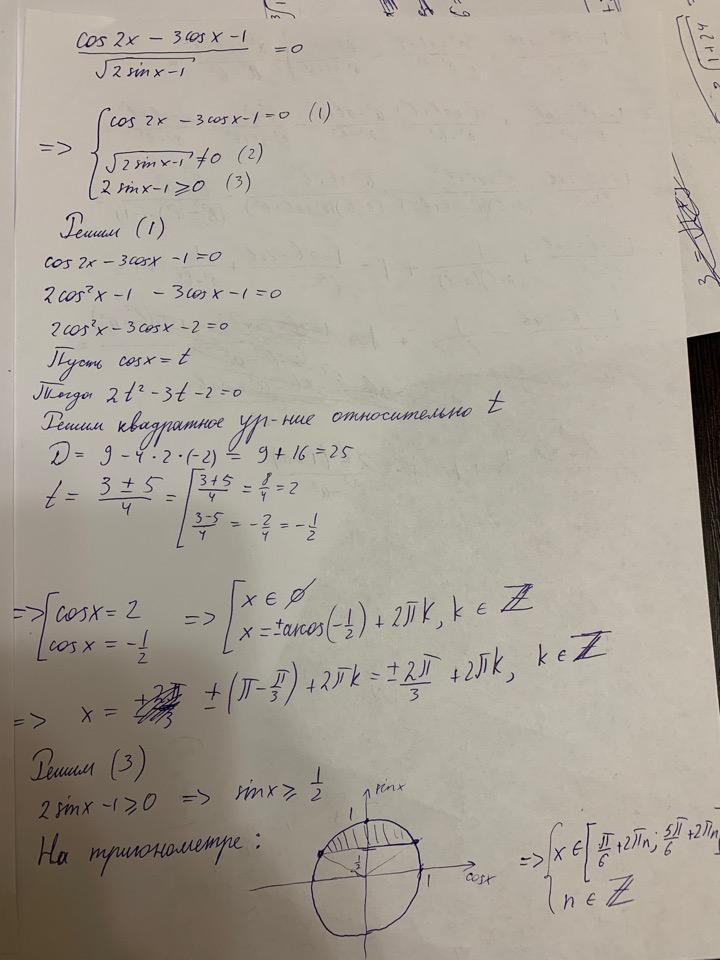 cos 2x − 3cos x − 1
√(2 sin x − 1) = 0
=> { cos 2x − 3cos x − 1 = 0 (1)
√(2 sin x − 1) ≠ 0 (2)
2 sin x − 1 ⩾ 0 (3)
Решим (1)
cos 2x − 3cos x − 1 = 0
2cos²x − 1 − 3cos x − 1 = 0
2cos²x − 3cos x − 2 = 0
Пусть cos x = t
Тогда 2t² − 3t − 2 = 0
Решим квадратное ур-ние относительно t
D = 9 − 4 · 2 · (−2) = 9 + 16 = 25
t = (3 ± 5)/4 = [ (3+5)/4 = 8/4 = 2
(3−5)/4 = −2/4 = −1/2
=> [ cos x = 2 => [ x ∈ ∅
cos x = −1/2 x = ± arcos(−1/2) + 2πk, k ∈ ℤ
=> x = ± (π − π/3) + 2πk = ± 2π/3 + 2πk, k ∈ ℤ
Решим (3)
2 sin x − 1 ⩾ 0 => sin x ⩾ 1/2
На тригонометре:
sin x
1
1/2
1
cos x
=> { x ∈ [π/6 + 2πn; 5π/6 + 2πn]
n ∈ ℤ